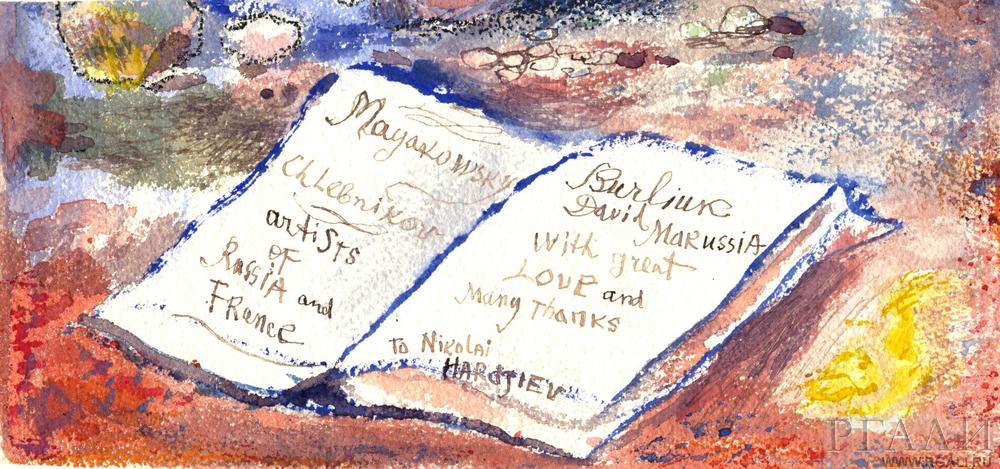 Mayakowsky
Chlebnikov
artists
of
Russia and
France
Burliuk
David Marussia
With great
Love and
Many Thanks
To Nikolai
Hardjiev
РГАЛИ
WWW.RGALI.RU